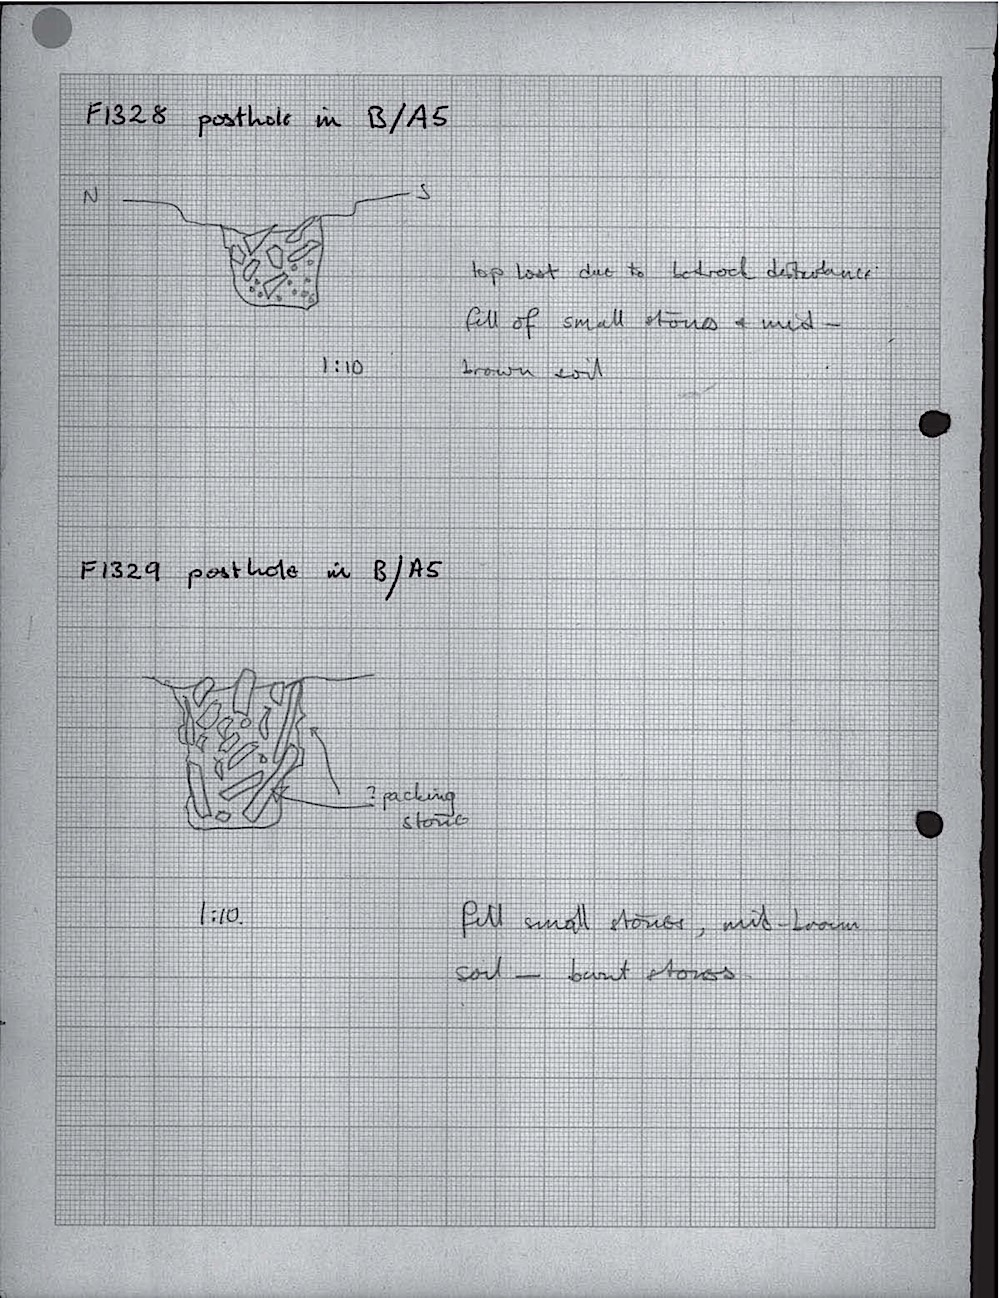 F1328 posthole in B/A5
N S
top lost due to bedrock disturbance
fill of small stones & mid-
1:10 brown soil
F1329 posthole in B/A5
? packing
stone
1:10.
fill small stones, mid-brown
soil – burnt stones